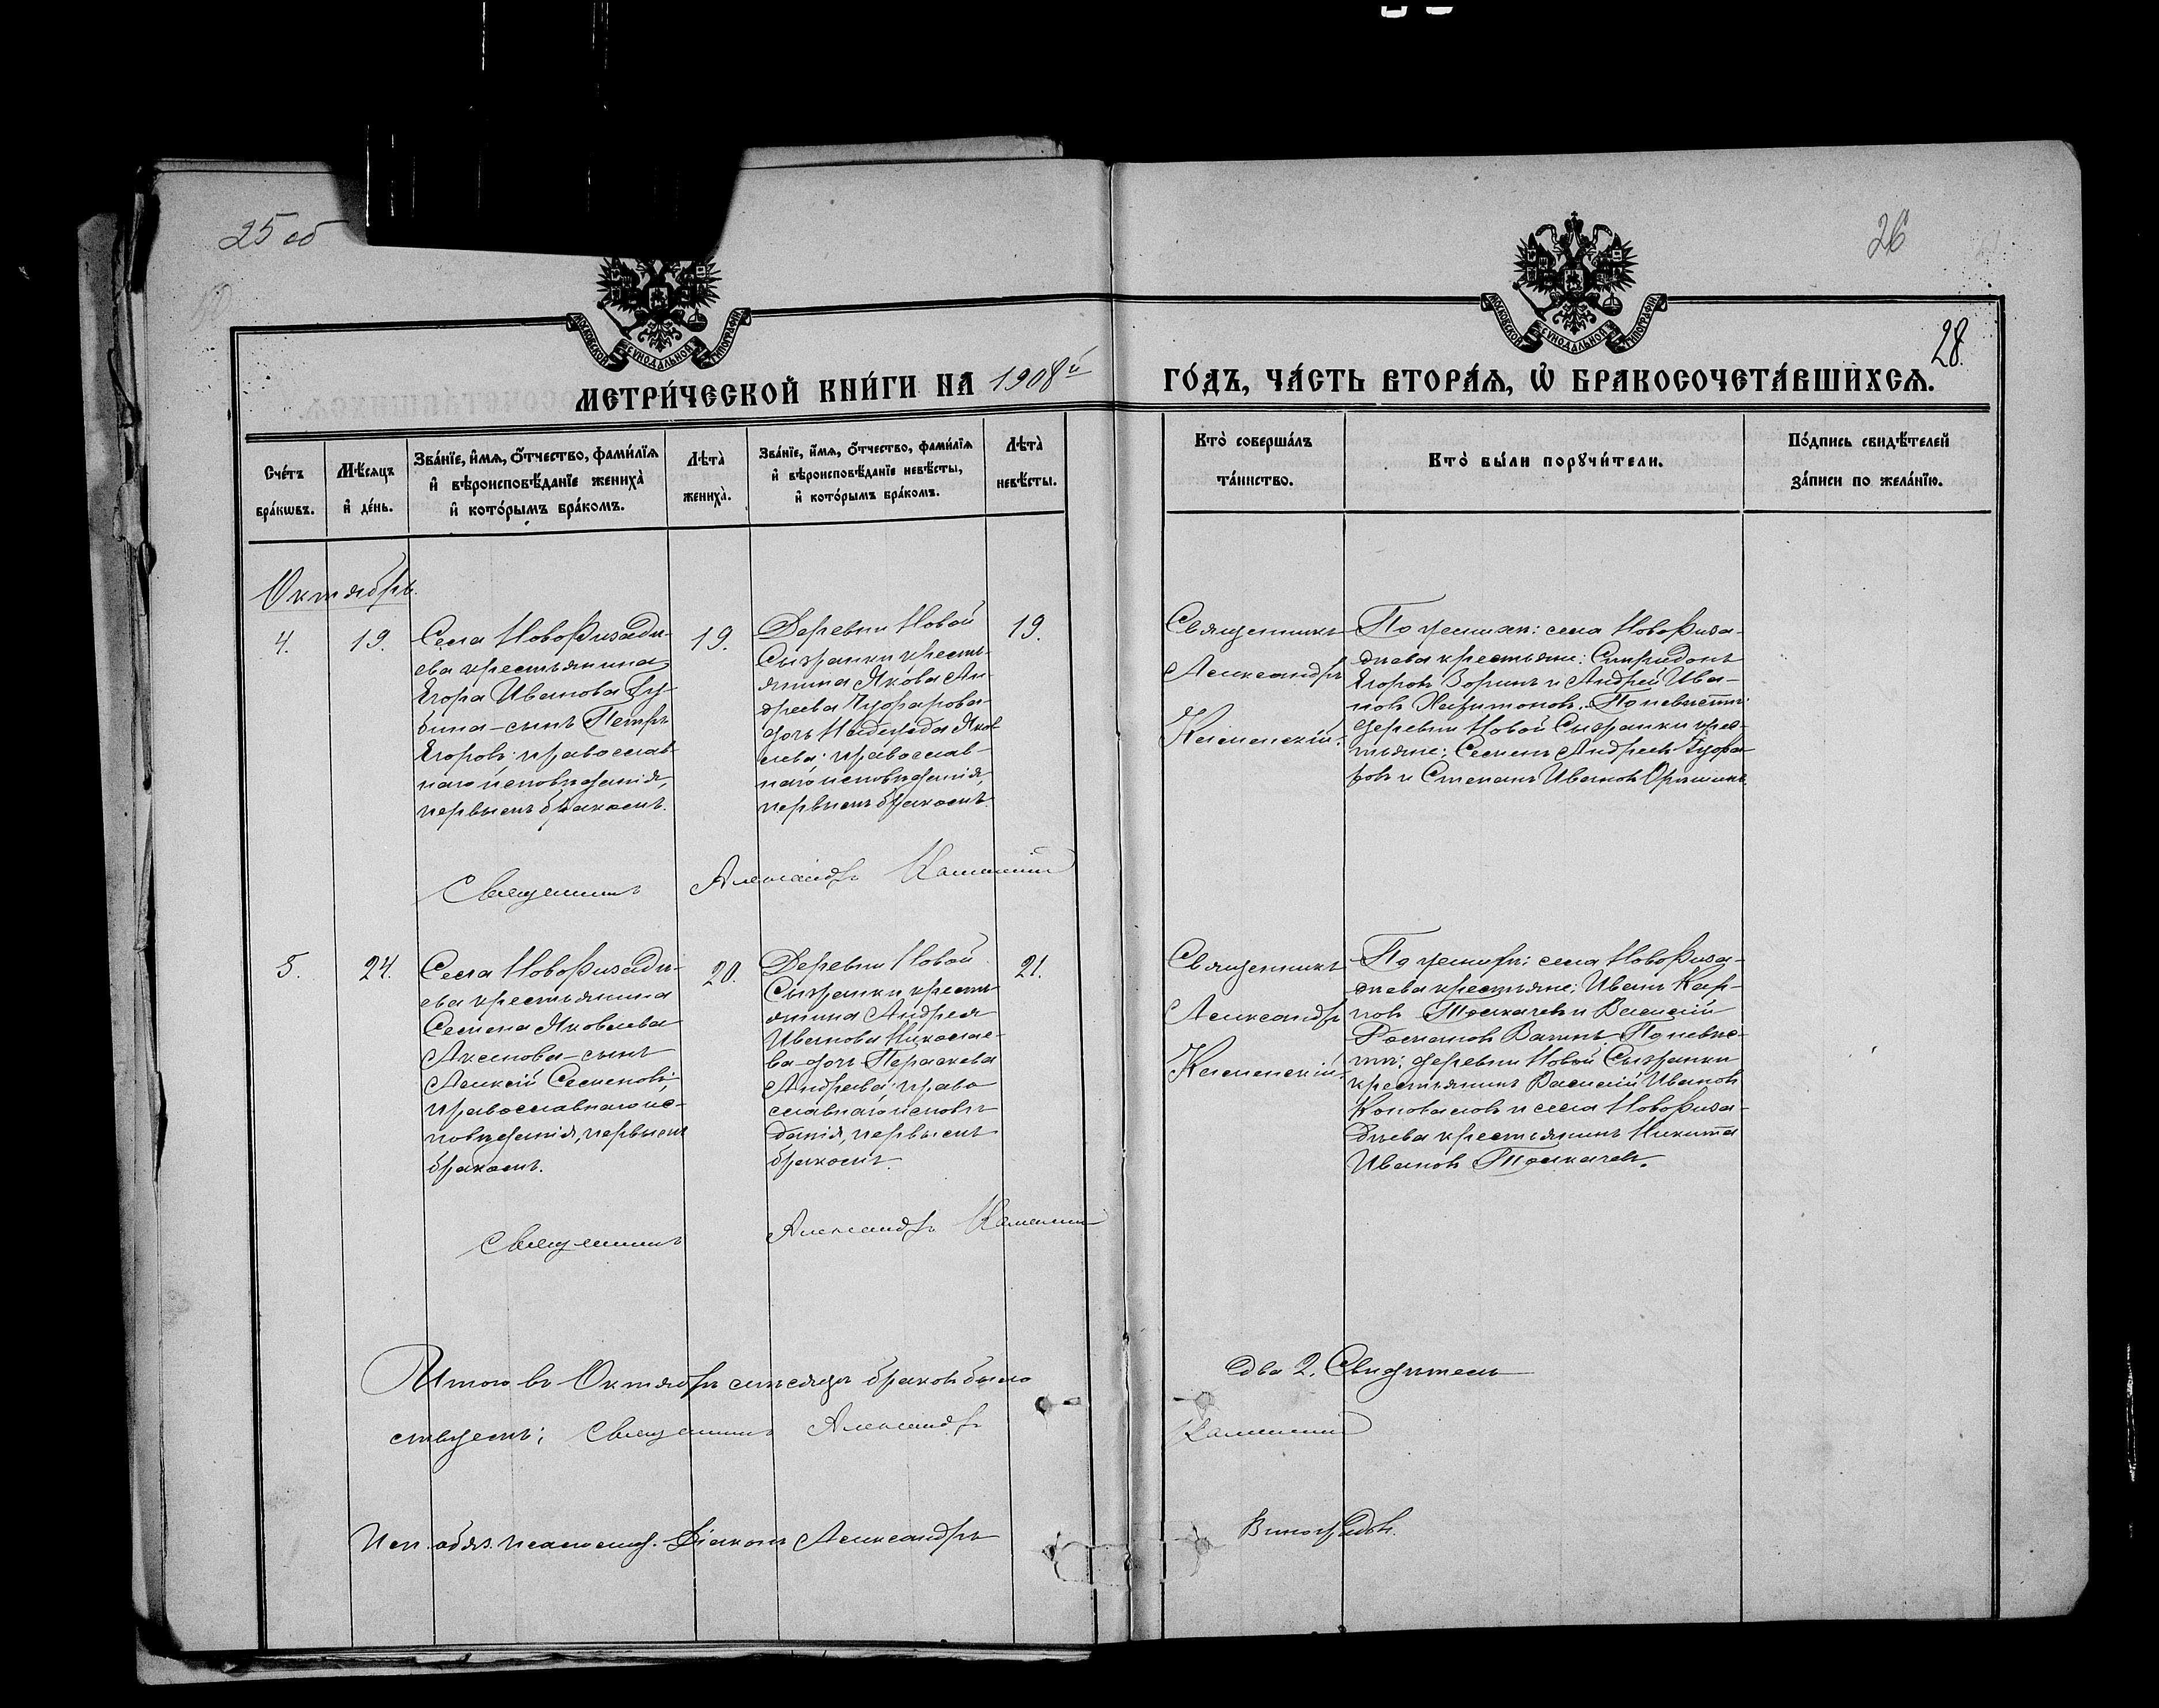 25 об
26
28.
МОСКОВСКОЙ СѴНОДАЛЬНОЙ ТИПОГРАФІИ
МОСКОВСКОЙ СѴНОДАЛЬНОЙ ТИПОГРАФІИ
МЕТРИ́ЧЕСКОЙ КНИ́ГИ НА 1908й ГО́ДЪ, ЧА́СТЬ ВТОРА́Ѧ, Ѡ҆ БРАКОСОЧЕТА́ВШИХСѦ.
Сче́тъ
бра́кѡвъ.
Мѣ́сѧцъ
и҆ де́нь.
Зва́нїе, и҆́мѧ, ѻ҆́тчество, фами́лїѧ
и҆ вѣроисповѣ́данїе жениха̀
и҆ кото́рымъ бра́комъ.
Лѣта̀
жениха̀.
Зва́нїе, и҆́мѧ, ѻ҆́тчество, фами́лїѧ
и҆ вѣроисповѣ́данїе невѣ́сты,
и҆ кото́рымъ бра́комъ.
Лѣта̀
невѣ́сты.
Кто̀ соверша́лъ
та́инство.
Кто̀ бы́ли порꙋчи́тели.
По́дпись свидѣ́телей
за́писи по жела́нїю.
Октябрь.
4.
19.
Села Новоризадѣ-
ева крестьянина
Егора Иванова Гу-
бина-сынъ Петръ
Егоровъ; православ-
наго исповѣданія,
первымъ бракомъ.
19.
Деревни Новой
Сызранки кресть-
янина Якова Ан-
дреева
дочь Надежда Яков-
лева; православ-
наго исповѣданія,
первымъ бракомъ.
19.
Священникъ
Александръ
Каменскій.
По женихѣ: села Новориза-
дѣева крестьяне: Спиридонъ
Егоровъ Зоринъ и Андрей Ива-
новъ Харитоновъ. По невѣстѣ:
деревни Новой Сызранки крес-
тьяне: Семенъ Андреевъ
и Степанъ Ивановъ
Священникъ Александръ Каменскій
5.
24.
Села Новоризадѣ-
ева крестьянина
Семена Яковлева
Аксенова-сынъ
Алексій Семеновъ;
православнаго ис-
повѣданія, первымъ
бракомъ.
20.
Деревни Новой
Сызранки кресть-
янина Андрея
Иванова Николае-
ва дочь Параскева
Андреева; право
славнаго исповѣ-
данія, первымъ
бракомъ.
21.
Священникъ
Александръ
Каменскій.
По женихѣ: села Новориза-
дѣева крестьяне: Иванъ Кар-
повъ Толкачевъ и Василій
Романовъ По невѣс-
тѣ: деревни Новой Сызранки
крестьянинъ Василій Ивановъ
Коноваловъ и села Новориза-
дѣева крестьянинъ Никита
Ивановъ Толкачевъ.
Священникъ Александръ Каменскій
Итого въ Октябрѣ мѣсяцѣ браковъ было два 2. Свидѣтель-
ствуемъ; Священникъ Александръ Каменскій
Исп. обяз. псаломщ. Діаконъ Александръ Виноградовъ.